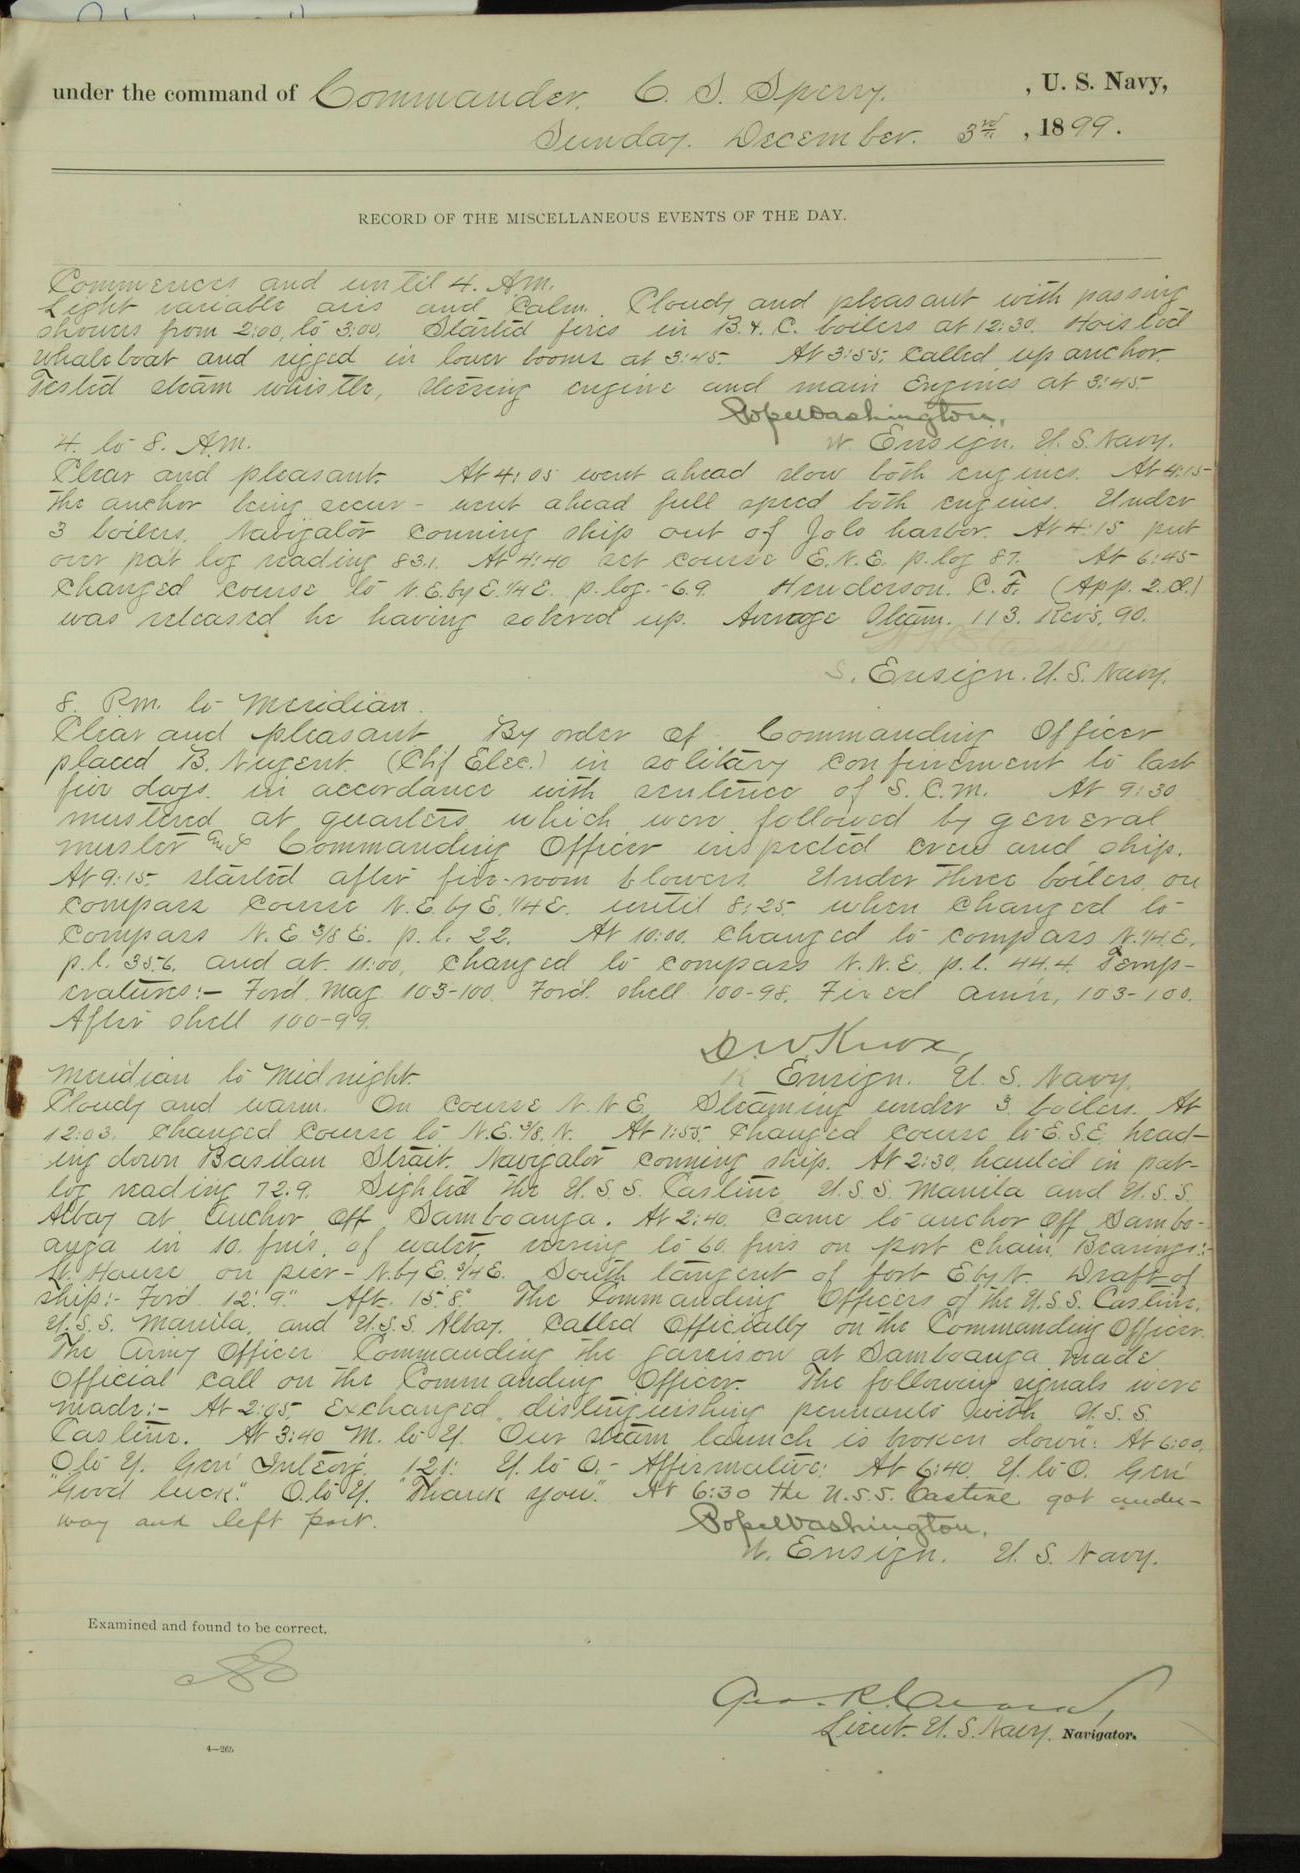 under the command of Commander. C. S. Sperry. , U. S. Navy,
Sunday. December. 3rd , 1899.
RECORD OF THE MISCELLANEOUS EVENTS OF THE DAY.
Commences and until 4. A.M.
Light variable airs and calm. Cloudy and pleasant with passing
showers from 2:00, to 3:00. Started fires in B. & C. boilers at 12:30. Hoisted
whaleboat and rigged in lower booms at 3:45. At 3:55. called up anchor.
Tested steam whistle, steering engine and main Engines at 3:45.
Pope Washington,
W. Ensign. U. S. Navy.
4. to 8. A.M.
Clear and pleasant. At 4:05 went ahead slow both engines. At 4:15
the anchor being secur- went ahead full speed both engines. Under
3 boilers. Navigator conning ship out of Jolo harbor. At 4:15 put
over pat log reading 83.1. At 4:40 set course E.N.E. p. log 87. At 6:45
changed course to N.E. by E. 1/4 E. p. log. - 6.9. Henderson. C. F. (App. 2. Cl.)
was released he having sobered up. Average Steam. 113. Revs. 90.
S. Ensign. U. S. Navy.
8. P.m. to Meridian.
Clear and pleasant. By order of Commanding Officer
placed B. Nugent. (Chf Elec.) in solitary confinement to last
five days. in accordance with sentence of S. C. M. At 9:30
mustered at quarters which were followed by general
muster and Commanding Officer inspected crew and ship.
At 9:15. started after fire-room blowers. Under three boilers, on
compass course N. E. by E. 1/4 E. until 8:25. when changed to
compass N. E 3/8 E. p. l. 22. At 10:00. changed to compass N. 1/4 E.
p. l. 35.6. and at 11:00, changed to compass N. N. E. p. l. 44.4. Temp-
eratures:- Ford. Mag. 103-100. Ford. shell 100-98. Fixed amn, 103-100.
After shell 100-99.
D. W. Knox,
K Ensign. U. S. Navy.
Meridian to Midnight.
Cloudy and warm. On course N. N. E. Steaming under 3 boilers. At
12:03. changed course to N. E. 3/8. N. At 1:55. changed course to E. S. E. head-
ing down Basilan Strait. Navigator conning ship. At 2:30, hauled in pat-
log reading 72.9. Sighted the U. S. S. Castine, U. S. S. Manila and U. S. S.
Albay at anchor off Samboanga. At 2:40. came to anchor off Sambo-
anga in 10. fms. of water, veering to 60. fms on port chain. Bearings:-
House on pier - N. by E. 3/4 E. South tangent of fort E by N. Draft of
ship:- Ford. 12'. 9." Aft. 15'. 8." The Commanding Officers of the U. S. S. Castine.
U. S. S. Manila, and U. S. S. Albay. called officially on the Commanding Officer.
The Army Officer Commanding the garrison at Samboanga made
Official call on the Commanding Officer. The following signals were
made:- At 2:05, exchanged distinguishing pennants with U. S. S.
Castine. At 3:40 M. to Y. "Our steam launch is broken down". At 6:00,
O. to Y. Gen' Interog. 121. Y. to O. - Affirmative: At 6:40. Y. to O. Gen'
"Good luck". O. to Y. "Thank you". At 6:30 the U. S. S. Castine got under-
way and left port.
Pope Washington,
W. Ensign. U. S. Navy.
Examined and found to be correct.
Lieut. U. S. Navy. Navigator.
4—265